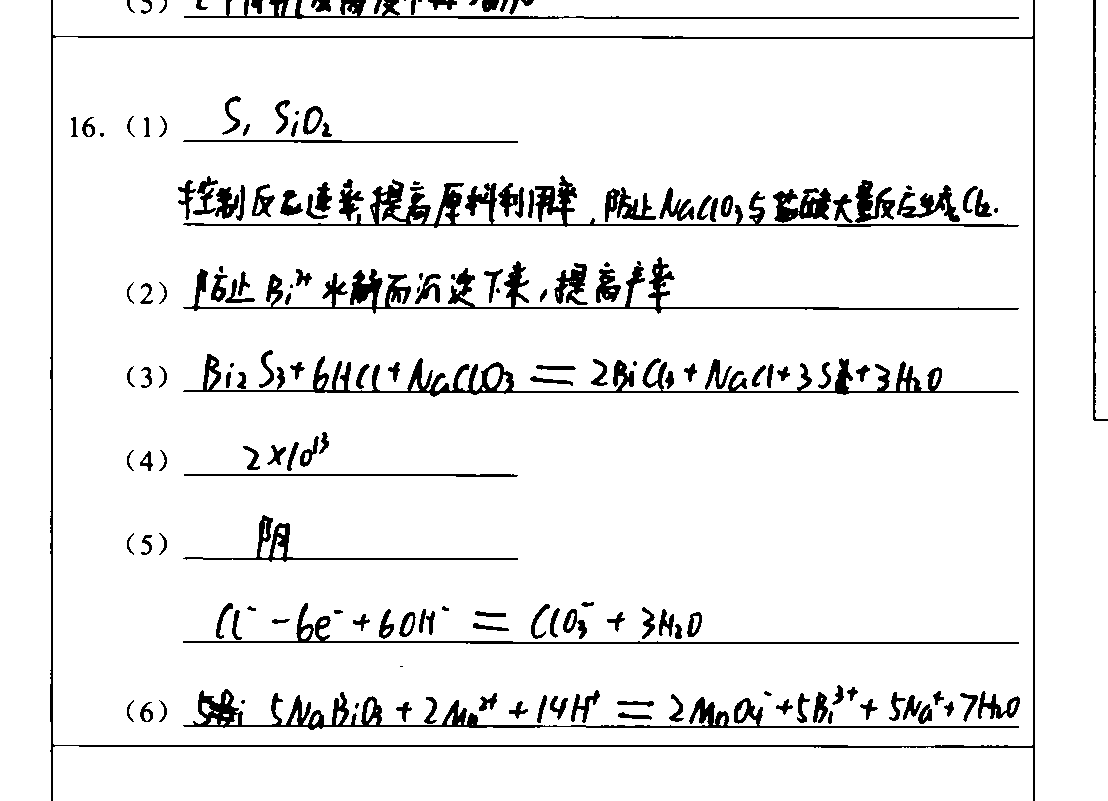 (5)
16. (1) S, SiO₂
控制反应速率,提高原料利用率,防止NaClO₃与盐酸大量反应生成Cl₂.
(2) 防止Bi³⁺水解而沉淀下来,提高产率
(3) Bi₂S₃+6HCl+NaClO₃=2BiCl₃+NaCl+3S+3H₂O
(4) 2×10¹³
(5) 阴
Cl⁻-6e⁻+6OH⁻=ClO₃⁻+3H₂O
(6) 5NaBiO₃+2Mn²⁺+14H⁺=2MnO₄⁻+5Bi³⁺+5Na⁺+7H₂O